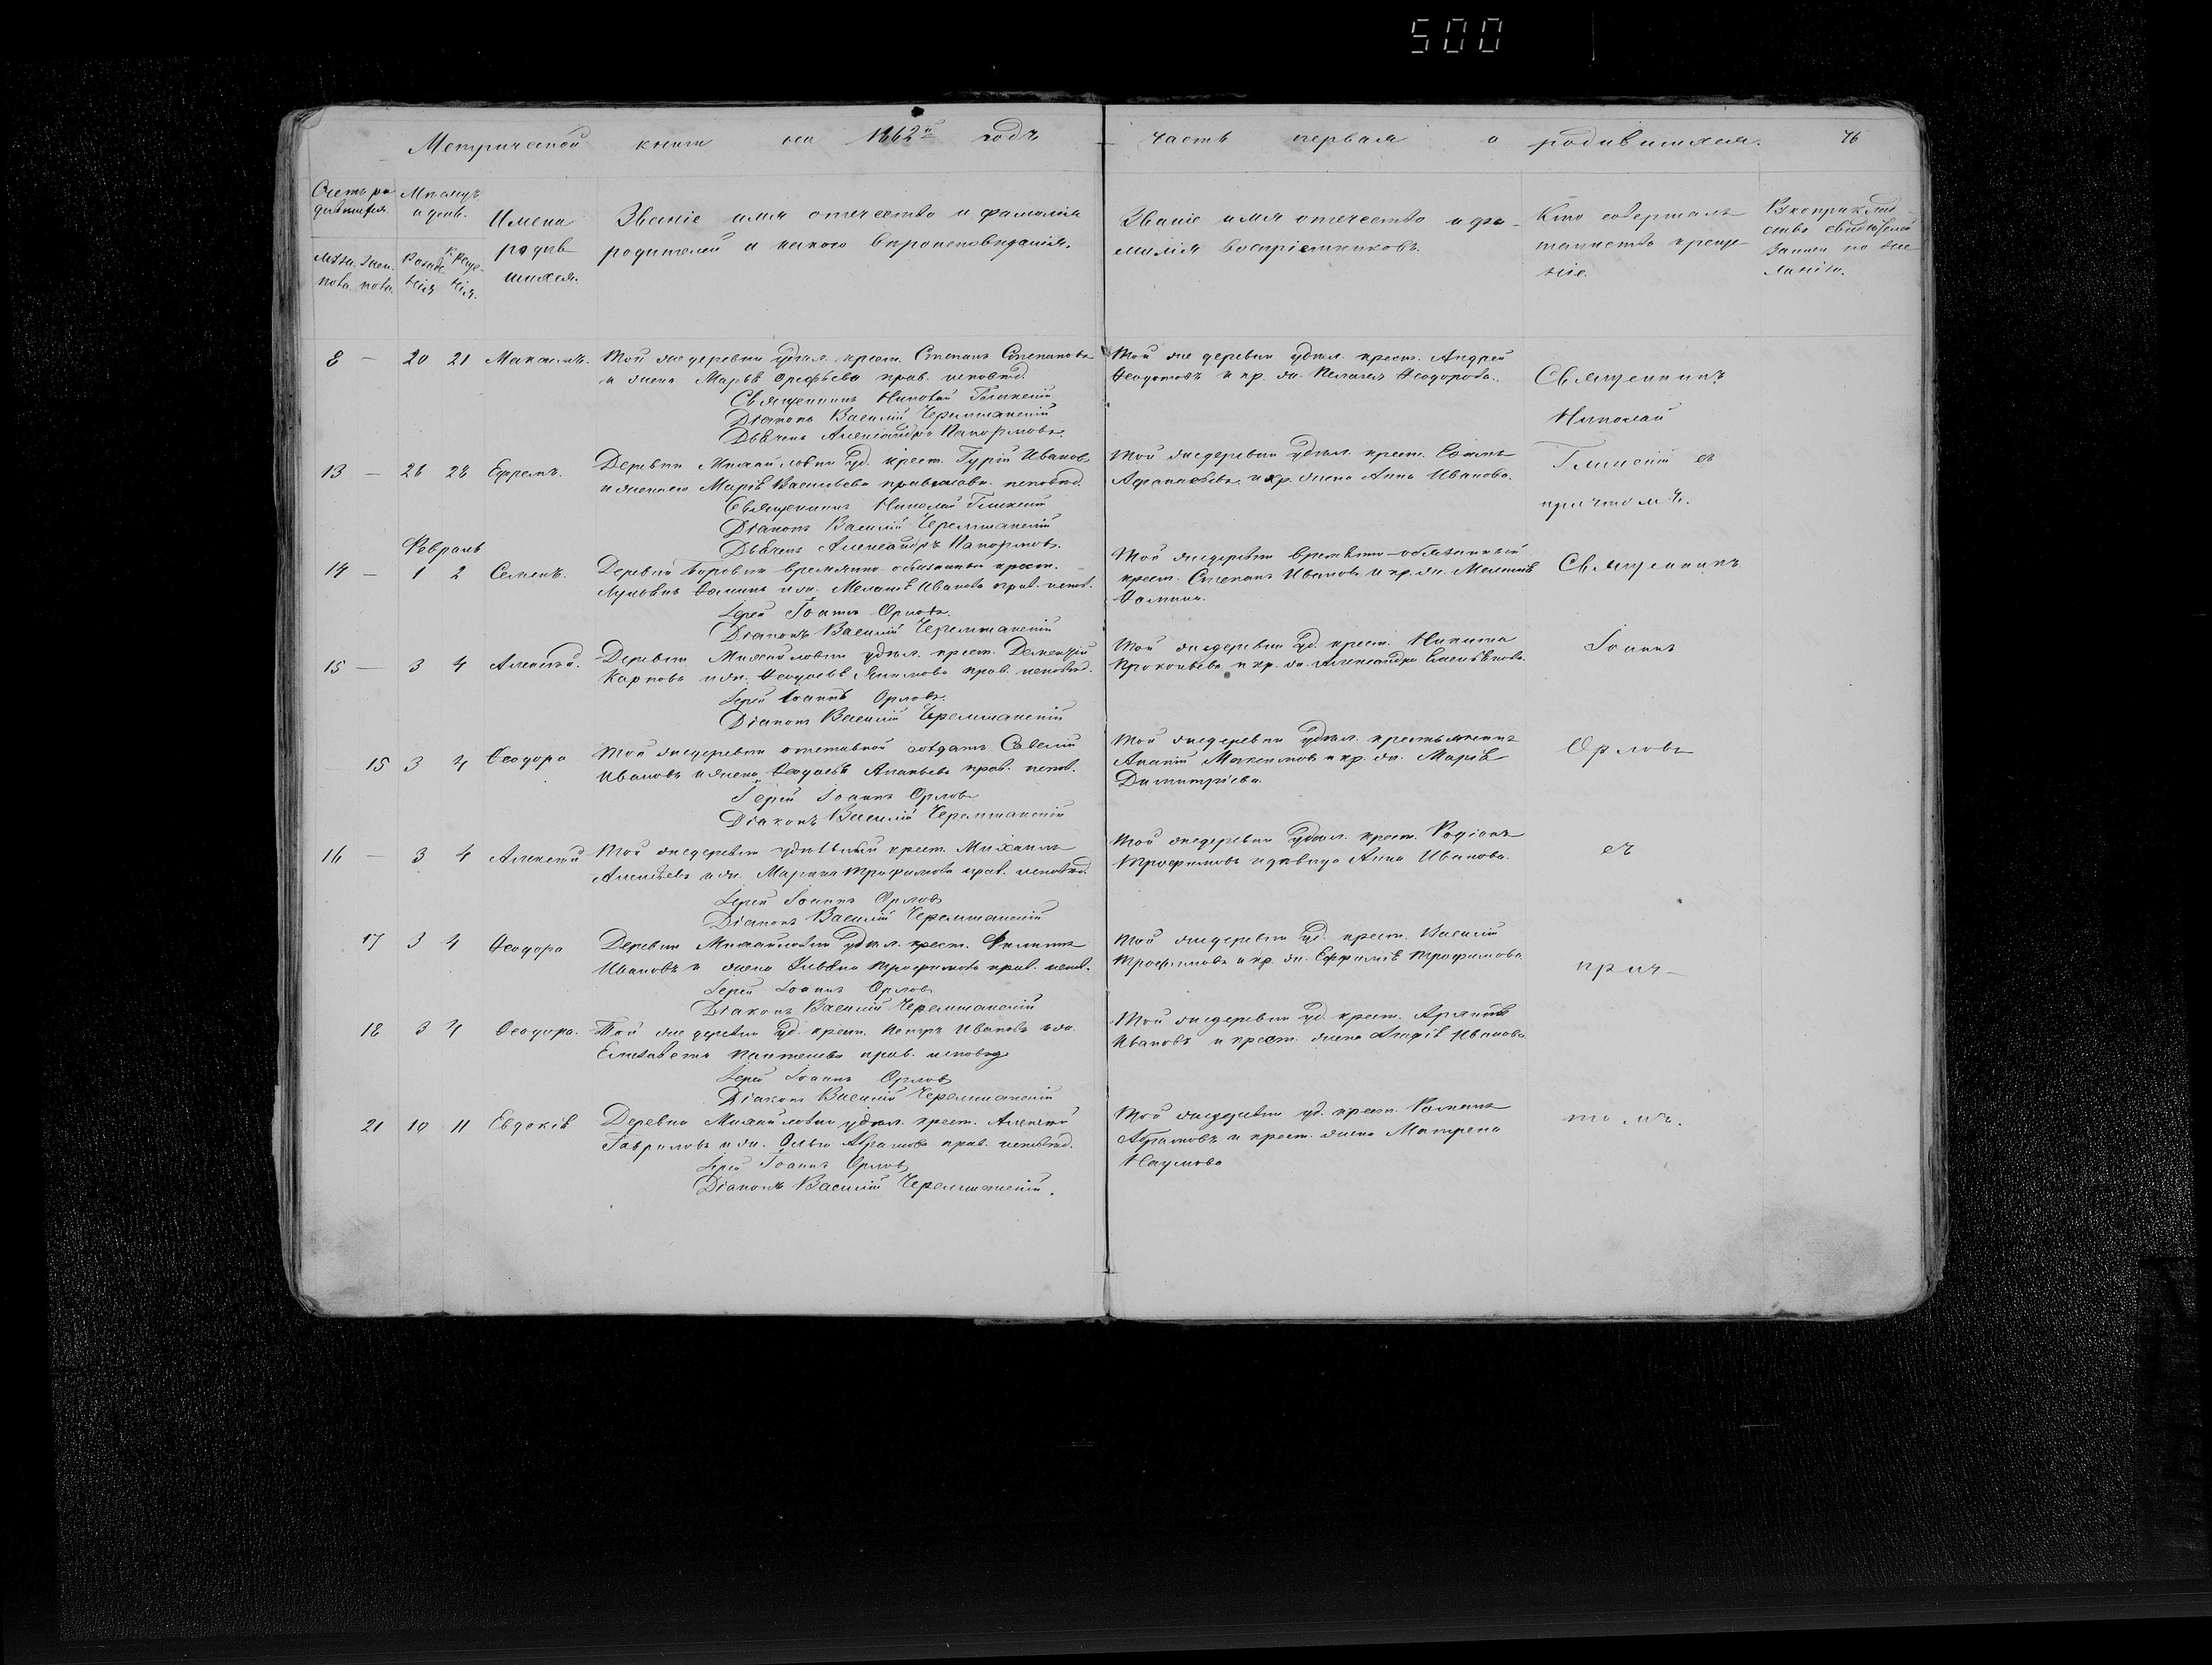 500
Метрической книги на 1862й годъ
часть первая о родившихся.
76
Счетъ ро
дившихся.
Мѣсяцъ
и день.
Имена
родив
шихся.
Званіе имя отчество и фамилія
родителей и какого вѣроисповѣданія.
Званіе имя отчество и фа-
милія воспріемниковъ.
Кто совершалъ
таинство креще-
нія.
Рукоприклад
ство свидѣтелей
записи по же
ланію.
8 — 20 21 Максимъ. Той же деревни удѣл. крест. Степанъ Степановъ
и жена Марья Орефьева прав. исповѣд.
Священникъ Николай Глинскій
Діаконъ Василій Черемшанскій
Дьячекъ Александръ Напормовъ.
Той же деревни удѣл. крест. Андрей
Ѳеодотовъ и кр. ж. Пелагея Ѳеодорова.
Священникъ
Николай
Глинскій съ
причтомъ.
13 — 26 28 Ефремъ. Деревни Михайловки уд. крест. Гурій Ивановъ
и жена его Марія Васильева православн. исповѣд.
Священникъ Николай Глинскій
Діаконъ Василій Черемшанскій
Дьячекъ Александръ Напормовъ.
Той же деревни удѣл. крест.
кр. жена Анна Иванова.
Февраль
14 — 1 2 Семенъ. Деревни Боровки временно обязанный крест.
Ѳоминъ и ж. Меланія Иванова прав. испов.
Іерей Іоаннъ Орловъ.
Діаконъ Василій Черемшанскій
Той же деревни временно-обязанный
крест. Степанъ Ивановъ и кр. ж. Меланія
Ѳомина.
Священникъ
Іоаннъ
Орловъ
съ
прич-
томъ.
15 — 3 4 Алексѣй. Деревни Михайловки удѣл. крест. Дементій
Карповъ и ж. Ѳеодосья Якимова прав. исповѣд.
Іерей Іоаннъ Орловъ.
Діаконъ Василій Черемшанскій
Той же деревни уд. крест. Никита
Прокопьевъ и кр. ж. Александра
15 3 4 Ѳеодора Той же деревни отставной солдатъ Савелій
Ивановъ и жена Ѳеодосья Ананьева прав. испов.
Іерей Іоаннъ Орловъ
Діаконъ Василій Черемшанскій
Той же деревни удѣл. крестьянинъ
Ананій Максимовъ и кр. ж. Марія
Димитріева.
16 — 3 4 Алексѣй Той же деревни удѣльный крест. Михаилъ
Алексѣевъ и ж. Марина Трофимова прав. исповѣд.
Іерей Іоаннъ Орловъ
Діаконъ Василій Черемшанскій
Той же деревни удѣл. крест. Родіонъ
Трофимовъ и дѣвица Анна Иванова.
17 3 4 Ѳеодора Деревни Михайловки удѣл. крест. Филиппъ
Ивановъ и жена Ульяна Трофимова прав. испов.
Іерей Іоаннъ Орловъ
Діаконъ Василій Черемшанскій
Той же деревни уд. крест. Василій
Трофимовъ и кр. ж. Ефимія Трофимова
18 3 4 Ѳеодора. Той же деревни уд. крест. Петръ Ивановъ и ж.
Елизавета Пантелѣева прав. исповѣд
Іерей Іоаннъ Орловъ
Діаконъ Василій Черемшанскій
Той же деревни уд. крест.
Ивановъ и крест. жена Иванова
21 10 11 Евдокія Деревни Михайловки удѣл. крест. Алексѣй
Гавриловъ и ж. Ольга Абрамова прав. исповѣд.
Іерей Іоаннъ Орловъ
Діаконъ Василій Черемшанскій.
Той же деревни уд. крест. Романъ
Абрамовъ и крест. жена Матрена
Наумова